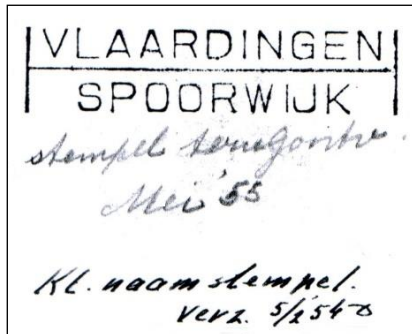 VLAARDINGEN
SPOORWIJK
stempel
Mei '55
Kl. naamstempel.
verz. 5/2 54